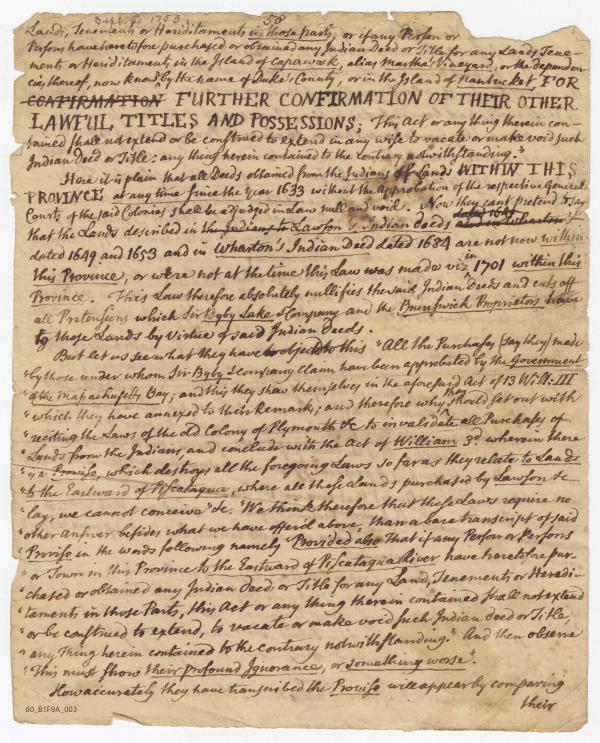 Sept. 1753 58
Lands, Tenements or Hereditaments in those parts, or if any Person or
Persons have heretofore purchased or obtained any Indian Deed or Title for any Lands, Tene-
ments or Hereditaments in the Island of Capawack, alias Martha's Vineyard, or the dependen-
cies thereof, now known by the name of Duke's County, or in the Island of Nantucket, FOR
CONFIRMATION FURTHER CONFIRMATION OF THEIR OTHER
LAWFUL TITLES AND POSSESSIONS; This Act or any thing therein con-
tained shall not extend or be construed to extend in any wise to vacate or make void such
Indian Deed or Title: any thing herein contained to the contrary notwithstanding."
Here it is plain that all Deeds obtained from the Indians of Lands WITHIN THIS
PROVINCE at any time since the year 1633 without the Approbation of the respective General
Courts of the said Colonies shall be adjudged in Law null and void. Now they can't pretend to say
that the Lands described in the Indians to Lawson's Indian deeds dated 1649 and in Wharton's
dated 1649 and 1653 and in Wharton's Indian Deed dated 1684 are not now within
this Province, or were not at the time this Law was made viz. in 1701 within this
Province. This Law therefore absolutely nullifies the said Indian Deeds and cuts off
all Pretensions which Sir Byby Lake & Company and the Brunswick Proprietors have
to those Lands by Virtue of said Indian Deeds.
But let us see what they have to object to this "All the Purchases (say they) made
"by those under whom Sir Byby & company claim have been approbated by the Government
"of the Massachusetts Bay; and this they shew themselves in the aforesaid Act of 13 Will. III
"which they have annexed to their Remark; and therefore why they should set out with
"reciting the Laws of the old Colony of Plymouth &c to invalidate all Purchases of
"Lands from the Indians, and conclude with the Act of William 3d wherein there
"is a Proviso, which destroys all the foregoing Laws so far as they relate to Lands
"to the Eastward of Piscataqua, where all these Lands purchased by Lawson &c
"lay, we cannot conceive" &c. "We think therefore that these Laws require no
"other answer besides what we have offer'd above, than a bare transcript of said
"Proviso in the words following namely "Provided also That if any Person or Persons
"or Town in this Province to the Eastward of Piscataqua River have heretofore pur-
"chased or obtained any Indian Deed or Title for any Land, Tenements or Heredi-
"taments in those Parts, this Act or any thing therein contained shall not extend
"or be construed to extend, to vacate or make void such Indian deed or Title,
"any Thing herein contained to the contrary notwithstanding." And then observe
"This must shew their profound Ignorance, or something worse".
How accurately they have transcribed the Proviso will appear by comparing
their
60_B1F9A_003